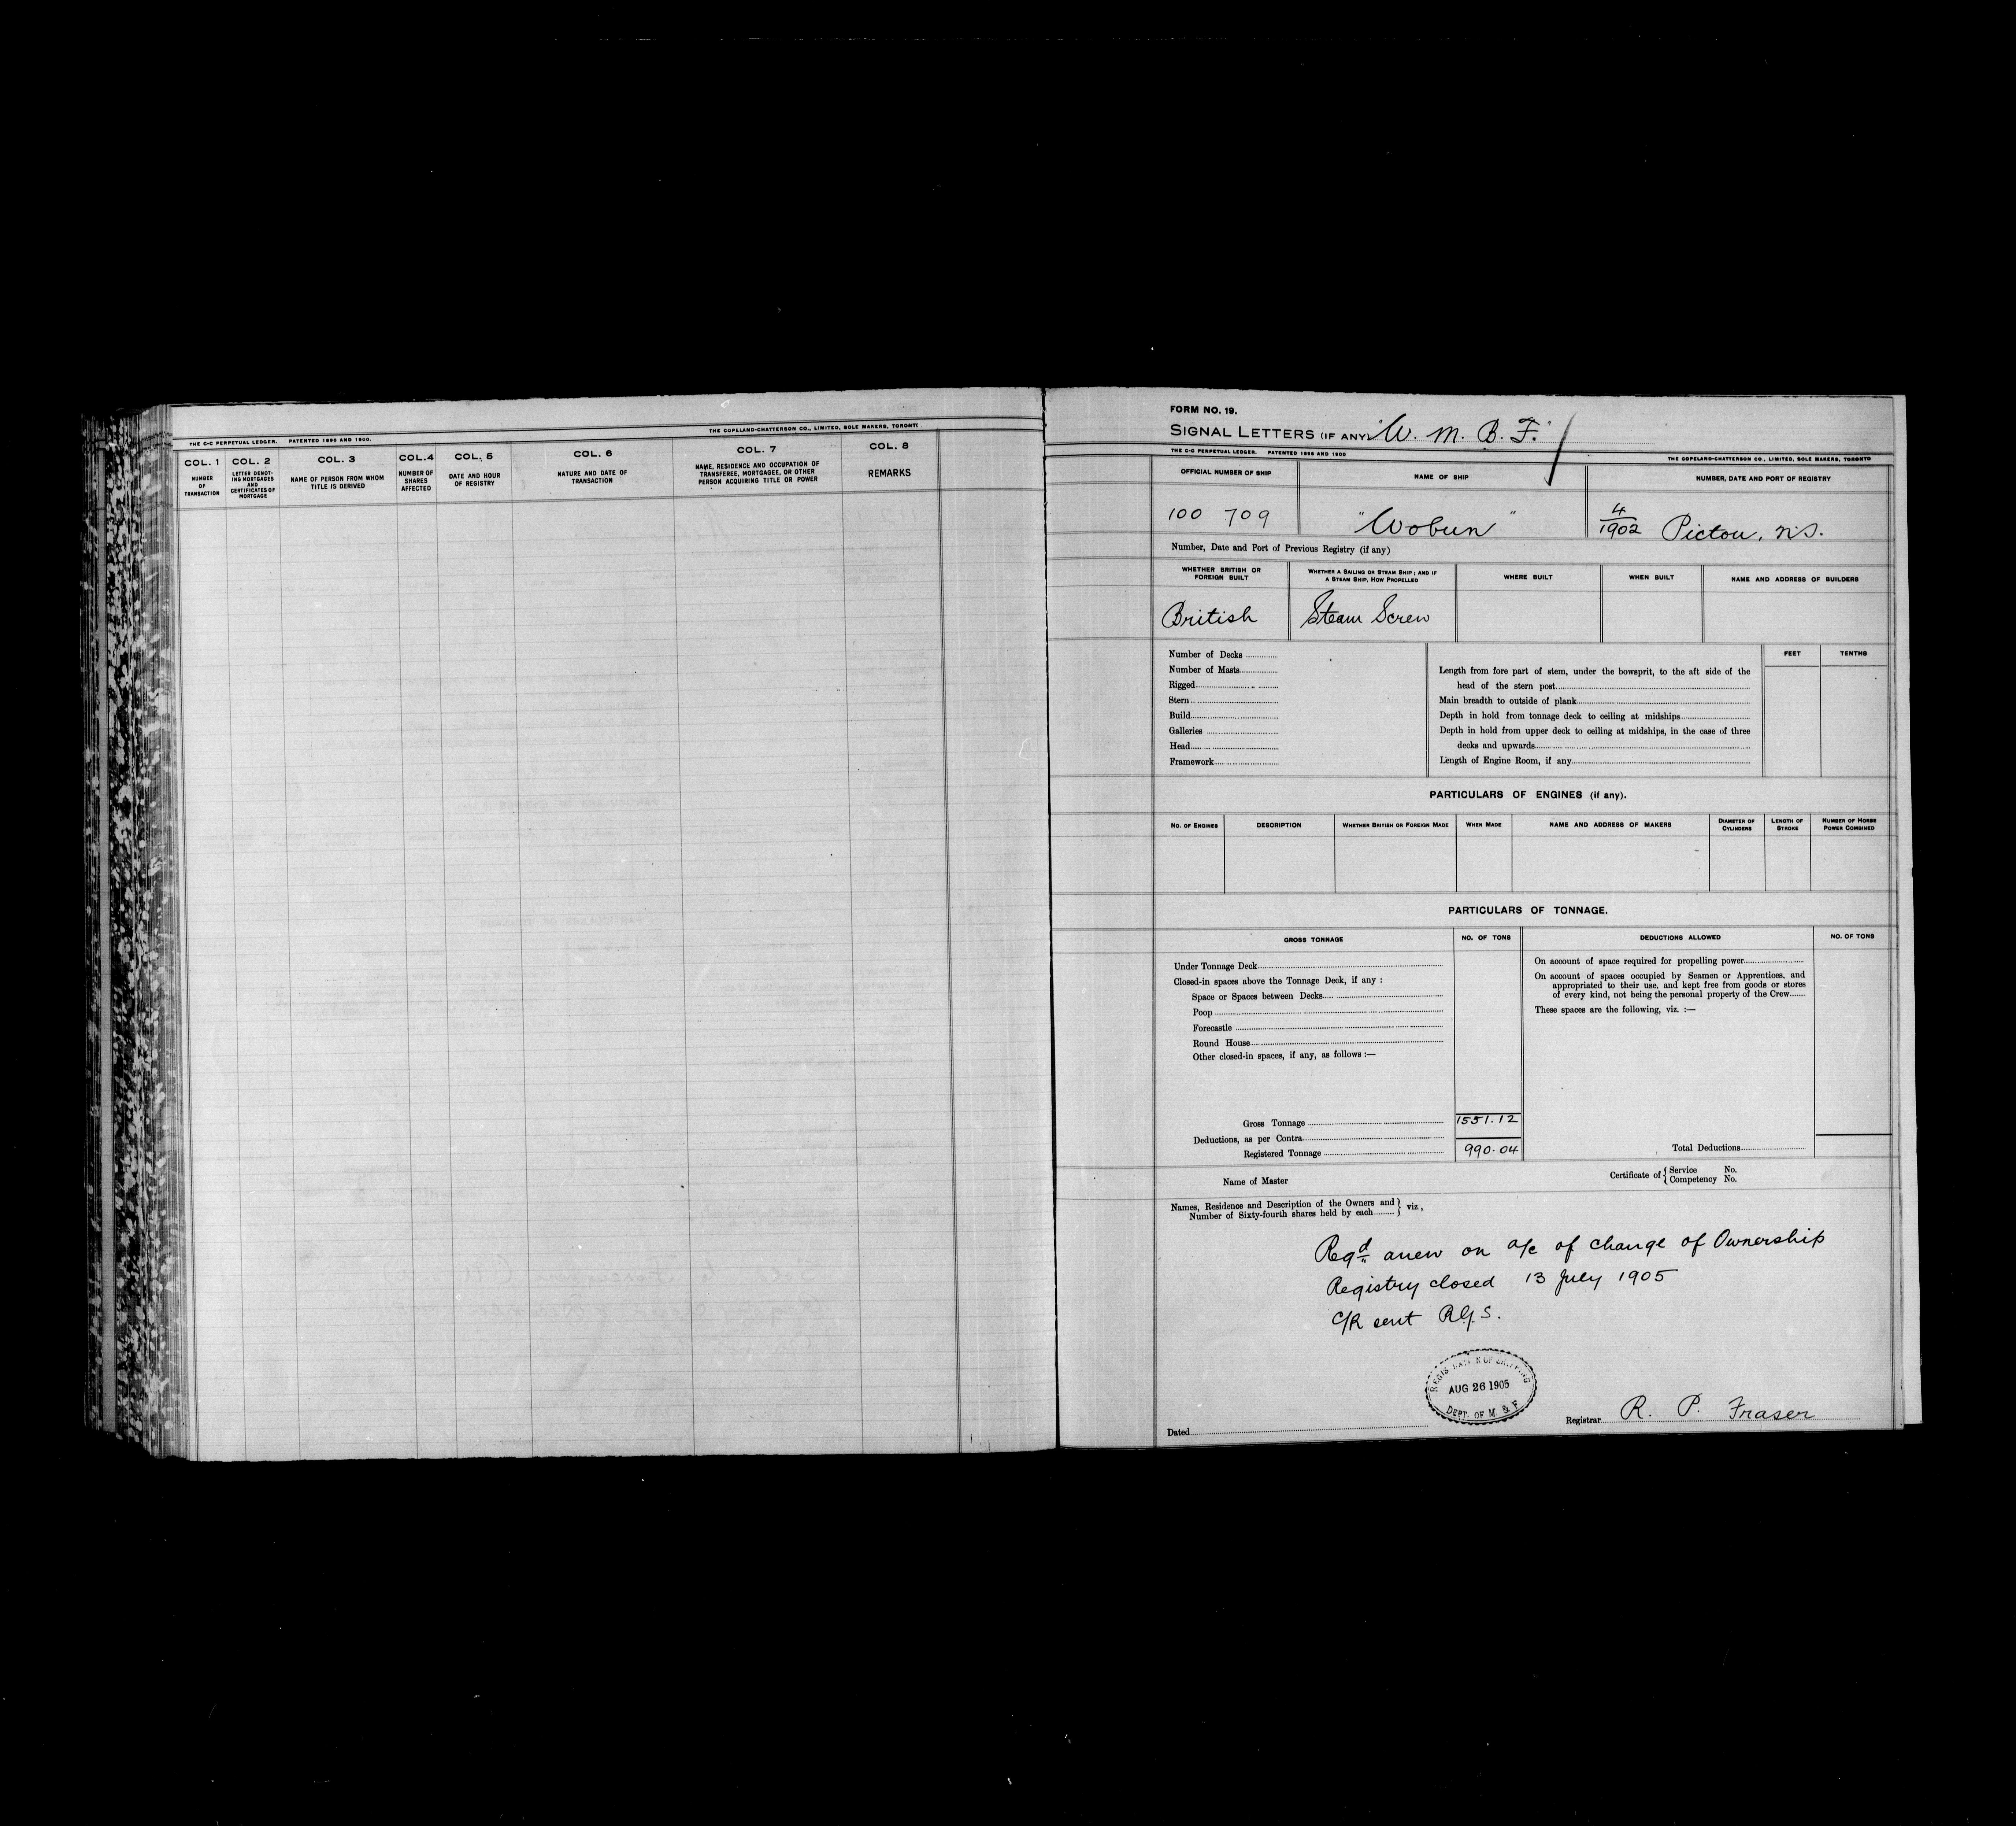 THE C-C PERPETUAL LEDGER. PATENTED 1896 AND 1900.
THE COPELAND-CHATTERSON CO., LIMITED, SOLE MAKERS, TORONTO
COL. 1 COL. 2 COL. 3 COL. 4 COL. 5 COL. 6 COL. 7 COL. 8
NUMBER OF TRANSACTION
LETTER DENOTING MORTGAGES AND CERTIFICATES OF MORTGAGE
NAME OF PERSON FROM WHOM TITLE IS DERIVED
NUMBER OF SHARES AFFECTED
DATE AND HOUR OF REGISTRY
NATURE AND DATE OF TRANSACTION
NAME, RESIDENCE AND OCCUPATION OF TRANSFEREE, MORTGAGEE, OR OTHER PERSON ACQUIRING TITLE OR POWER
REMARKS
FORM NO. 19.
SIGNAL LETTERS (IF ANY) "W. M. B. F."
THE C-C PERPETUAL LEDGER. PATENTED 1896 AND 1900
THE COPELAND-CHATTERSON CO., LIMITED, SOLE MAKERS, TORONTO
OFFICIAL NUMBER OF SHIP
NAME OF SHIP
NUMBER, DATE AND PORT OF REGISTRY
100 709
"Wobun"
4/1902 Pictou, N.S.
Number, Date and Port of Previous Registry (if any)
WHETHER BRITISH OR FOREIGN BUILT
WHETHER A SAILING OR STEAM SHIP; AND IF A STEAM SHIP, HOW PROPELLED
WHERE BUILT
WHEN BUILT
NAME AND ADDRESS OF BUILDERS
British
Steam Screw
Number of Decks
Number of Masts
Rigged
Stern
Build
Galleries
Head
Framework
FEET TENTHS
Length from fore part of stem, under the bowsprit, to the aft side of the
head of the stern post
Main breadth to outside of plank
Depth in hold from tonnage deck to ceiling at midships
Depth in hold from upper deck to ceiling at midships, in the case of three
decks and upwards
Length of Engine Room, if any
PARTICULARS OF ENGINES (if any).
NO. OF ENGINES
DESCRIPTION
WHETHER BRITISH OR FOREIGN MADE
WHEN MADE
NAME AND ADDRESS OF MAKERS
DIAMETER OF CYLINDERS
LENGTH OF STROKE
NUMBER OF HORSE POWER COMBINED
PARTICULARS OF TONNAGE.
GROSS TONNAGE
NO. OF TONS
DEDUCTIONS ALLOWED
NO. OF TONS
Under Tonnage Deck
Closed-in spaces above the Tonnage Deck, if any :
Space or Spaces between Decks
Poop
Forecastle
Round House
Other closed-in spaces, if any, as follows :—
On account of space required for propelling power
On account of spaces occupied by Seamen or Apprentices, and
appropriated to their use, and kept free from goods or stores
of every kind, not being the personal property of the Crew
These spaces are the following, viz. :—
Gross Tonnage 1551.12
Deductions, as per Contra
Registered Tonnage 990.04
Total Deductions
Name of Master
Certificate of { Service No.
Competency No.
Names, Residence and Description of the Owners and
Number of Sixty-fourth shares held by each } viz.,
Regd anew on a/c of change of Ownership
Registry closed 13 July 1905
C/R sent R.G.S.
REGISTRAR OF SHIPPING
AUG 26 1905
DEPT. OF M & F
Dated
Registrar R. P. Fraser